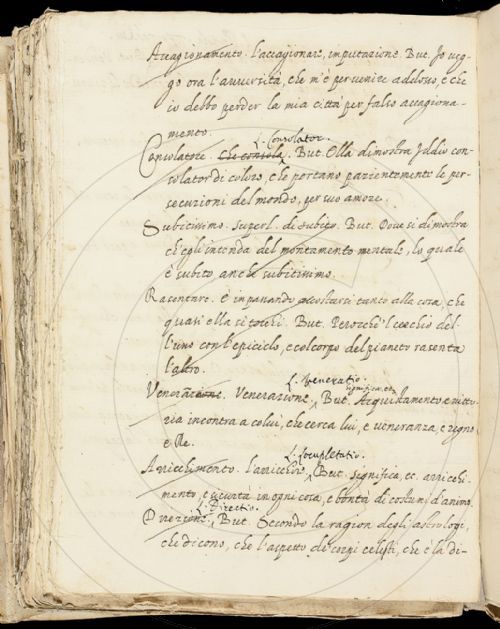 Accagionamento. l'accagionare, imputazione. But. Jo veg-
go ora l'avversità, che m'è per venire adosso, e che
io debbo perder la mia città per falso accagiona-
mento.
L. Consolator.
Consolatore. Che consola. But. Olla dimostra Iddio con-
solator di coloro, che portano pazientemente le per-
secuzioni del mondo, per suo amore.
Subitissimo. Superl. di subito. But. Dove si dimostra
ch'egli intenda del montamento mentale, lo quale
è subito, anche subitissimo.
Rasentare. È in passando accostarsi tanto alla cosa, che
quasi ella si tocchi. But. Perocchè 'l cerchio del-
l'uno con l'epiciclo, e col corpo del pianeto rasenta
l'altro.
L. Veneratio.
significando
Venerazione. But. Acquistamento e vitto-
ria incontra a colui, che cerca lui, e veneranza, e regno
L. Locupletatio.
Arricchimento. l'arricchire. But. Significa, ec. arricchi-
mento, e sicurtà in ogni cosa, e bontà di costumi d'animo.
L. Directio.
Direzione. But. Secondo la ragion degli astrologi,
che dicono, che l'aspetto de' corpi celesti, che è la di-